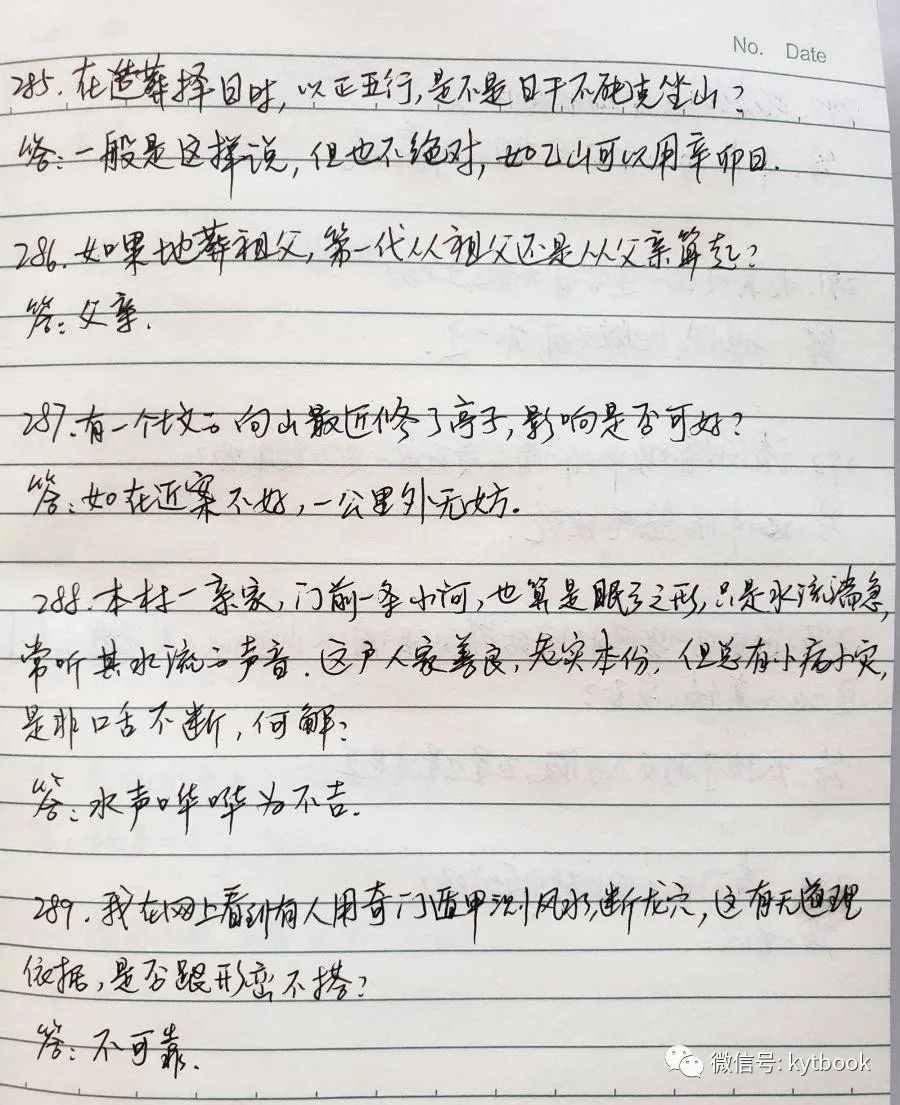 No. Date
285.在造葬择日时,以正五行,是不是日干不能克坐山?
答:一般是这样说,但也不绝对,如乙山可以用辛卯日.
286.如果地葬祖父,第一代从祖父还是从父亲算起?
答:父亲.
287.有一个坟云向山最近修了亭子,影响是否可好?
答:如在近案不好,一公里外无妨。
288.本村一亲家,门前一条小河,也算是眠弓之形,只是水流湍急,
常听其水流云声音.这户人家善良,老实本份,但总有小病小灾,
是非口舌不断,何解?
答:水声哗哗为不吉.
289.我在网上看到有人用奇门遁甲测风水,断龙穴,这有无道理
依据,是否跟形峦不搭?
答:不可靠.
微信号: kytbook